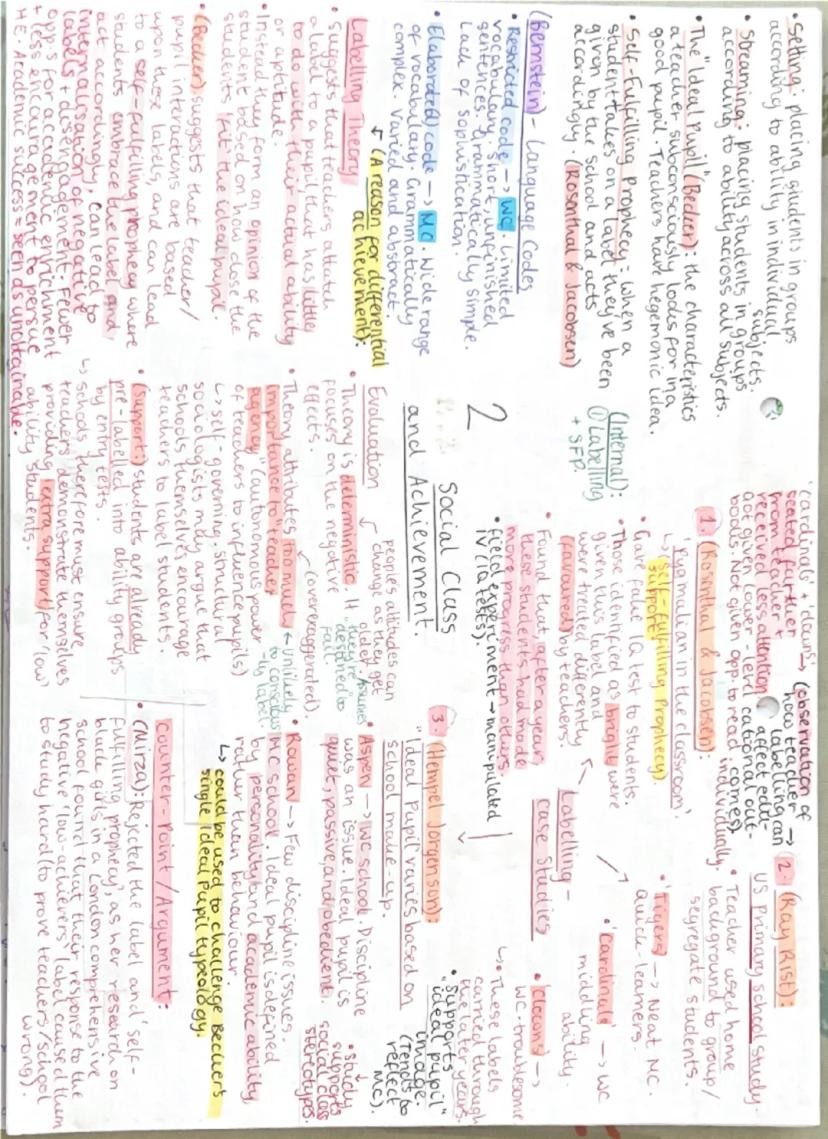 • Setting: placing students in groups
according to ability in individual
subjects.
• Streaming: placing students in groups
according to ability across all subjects.
• The "Ideal Pupil" (Becker): the characteristics
a teacher subconsciously looks for in a
good pupil. Teachers have hegemonic idea.
• Self-Fulfilling Prophecy: when a
student takes on a label they've been
given by the school and acts
accordingly. (Rosenthal & Jacobsen)
(Bernstein) - Language Codes
• Restricted code → WC. Limited
vocabulary, short, unfinished
sentences. Grammatically simple.
Lack of sophistication.
• Elaborated code → MC. Wide range
of vocabulary. Grammatically
complex. Varied and abstract.
↙ (A reason for differential
achievement):
Labelling Theory
• Suggests that teachers attatch
a label to a pupil that has little
to do with their actual ability
or aptitude.
• Instead they form an opinion of the
student based on how close the
students fit the ideal pupil.
• (Becker) suggests that teacher/
pupil interactions are based
upon these labels, and can lead
to a self-fulfilling prophecy where
students embrace the label and
act accordingly, can lead to
internalisation of negative
labels + disengagement. Fewer
opp.s for academic enrichment
+ less encouragement to persue
HE. Academic success = seen as unobtainable.
(Internal):
① Labelling
+ SFP
2
Social Class
and Achievement.
Evaluation
peoples attitudes can
change as they get
older
• Theory is deterministic. It
focuses on the negative
effects.
Assumes
they're
destined to
fail.
(overexaggerated).
• Theory attributes too much
importance to 'teacher
agency' (autonomous power
of teachers to influence pupils)
← Unlikely
to conscious
-ly label.
↳ self-governing, structural
sociologists may argue that
schools themselves encourage
teachers to label students.
• (Support:) students are already
pre-labelled into ability groups
by entry tests.
↳ Schools therefore must ensure
teachers demonstrate themselves
providing extra support for 'low'
ability students.
'cardinals' + 'clowns'
seated further
from teacher +
received less attention
Not given lower-level
books. Not given opp. to read
individually.
(observation of
how teacher
labelling can
affect edu-
cational out-
comes)
1. (Rosenthal & Jacobsen):
'Pygmalion in the classroom'.
↳ (self-fulfilling Prophecy)
support
• Gave fake IQ test to students.
• Those identified as brightly were
given this label and
were treated differently
(favoured) by teachers.
• Found that, after a year,
these students had made
more progress than others.
• Field experiment → manipulated
IV (IQ tests).
Labelling -
Case Studies
2. (Ray Rist):
US Primary school study.
• Teacher used home
background to group/
segregate students.
• 'Tigers' → Neat MC.
Quick-learners.
• 'Cardinals' → WC
middling
ability.
• 'Clowns' →
WC. troublesome
↳ These labels
carried through
the later years.
3. (Hempel Jorgenson):
"Ideal Pupil varies based on
school make-up.
• Supports
"ideal pupil"
image.
(Tends to
reflect
MC).
• Aspen → WC school. Discipline
was an issue. Ideal pupil is
quiet, passive, and obedient.
• Study
supports
social class
stereotypes.
• Rowan → Few discipline issues.
MC school. Ideal pupil is defined
by personality and academic ability,
rather than behaviour.
↳ could be used to challenge Beckers
single Ideal Pupil typeology.
Counter-Point/Argument:
• (Mirza): Rejected the label and 'self-
fulfilling prophecy', as her research on
black girls in a London comprehensive
school found that their response to the
negative 'low-achievers' label caused them
to study hard (to prove teachers/school
wrong).